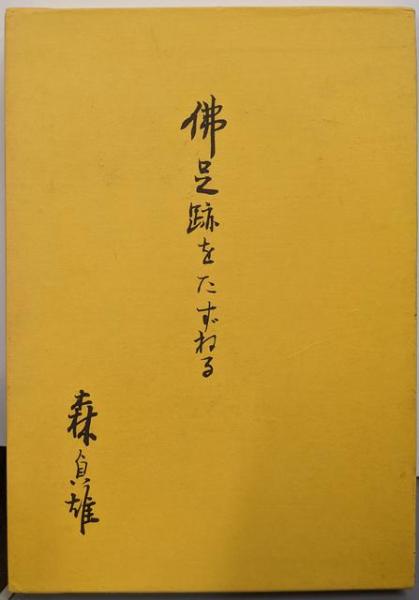 佛足跡をたずねる
森貞雄